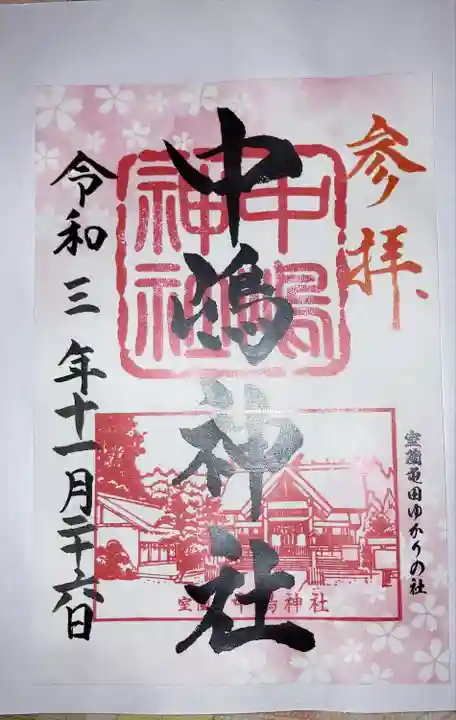 参拝
室蘭亀田ゆかりの社
中嶋神社
中嶋神社
室蘭 中嶋神社
令和三年十一月二十六日